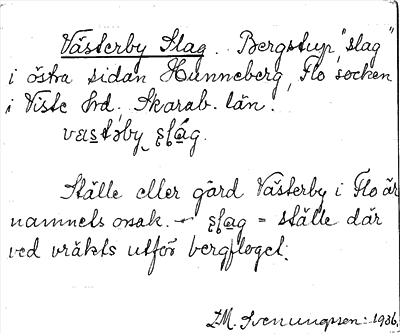 Västerby Slag. Bergstup, "slag"
i östra sidan Hunneberg, Flo socken
i Viste hrd, Skarab. län.
Ställe eller gård Västerby i Flo är
namnets orsak. - = ställe där
ved vräkts utför bergfloget.
I.M. Svenungsson. 1936.